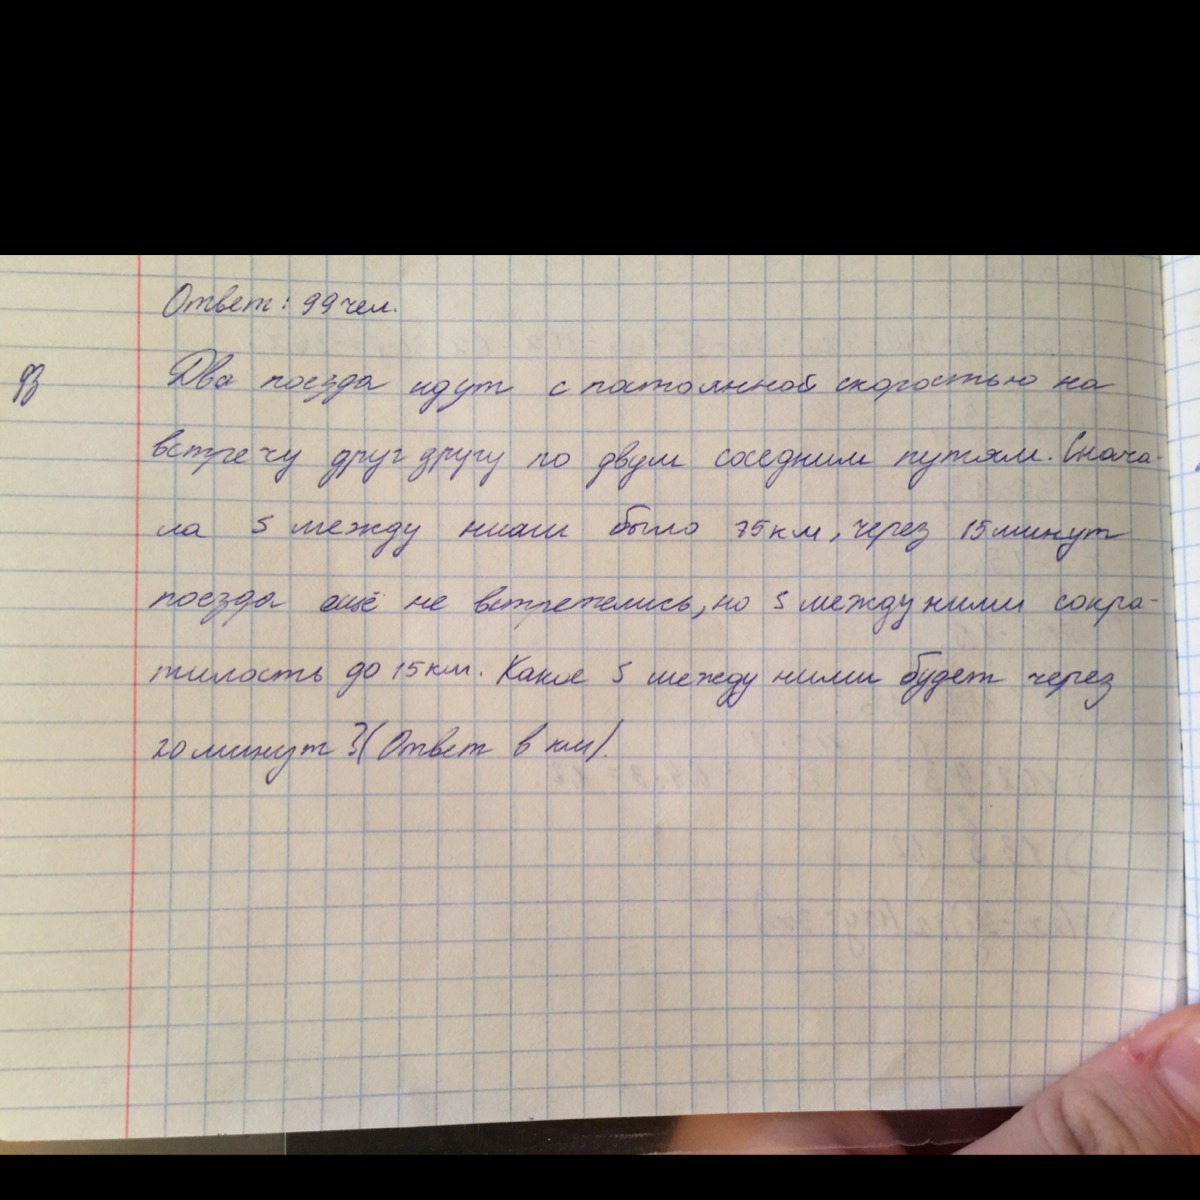 Ответ: 99 чел.
дз Два поезда идут с постоянной скоростью на
встречу друг другу по двум соседним путям. Снача-
ла S между ними было 75 км, через 15 минут
поезда ещё не встретелись, но S между ними сокра-
тилость до 15 км. Какое S между ними будет через
20 минут? (Ответ в км).